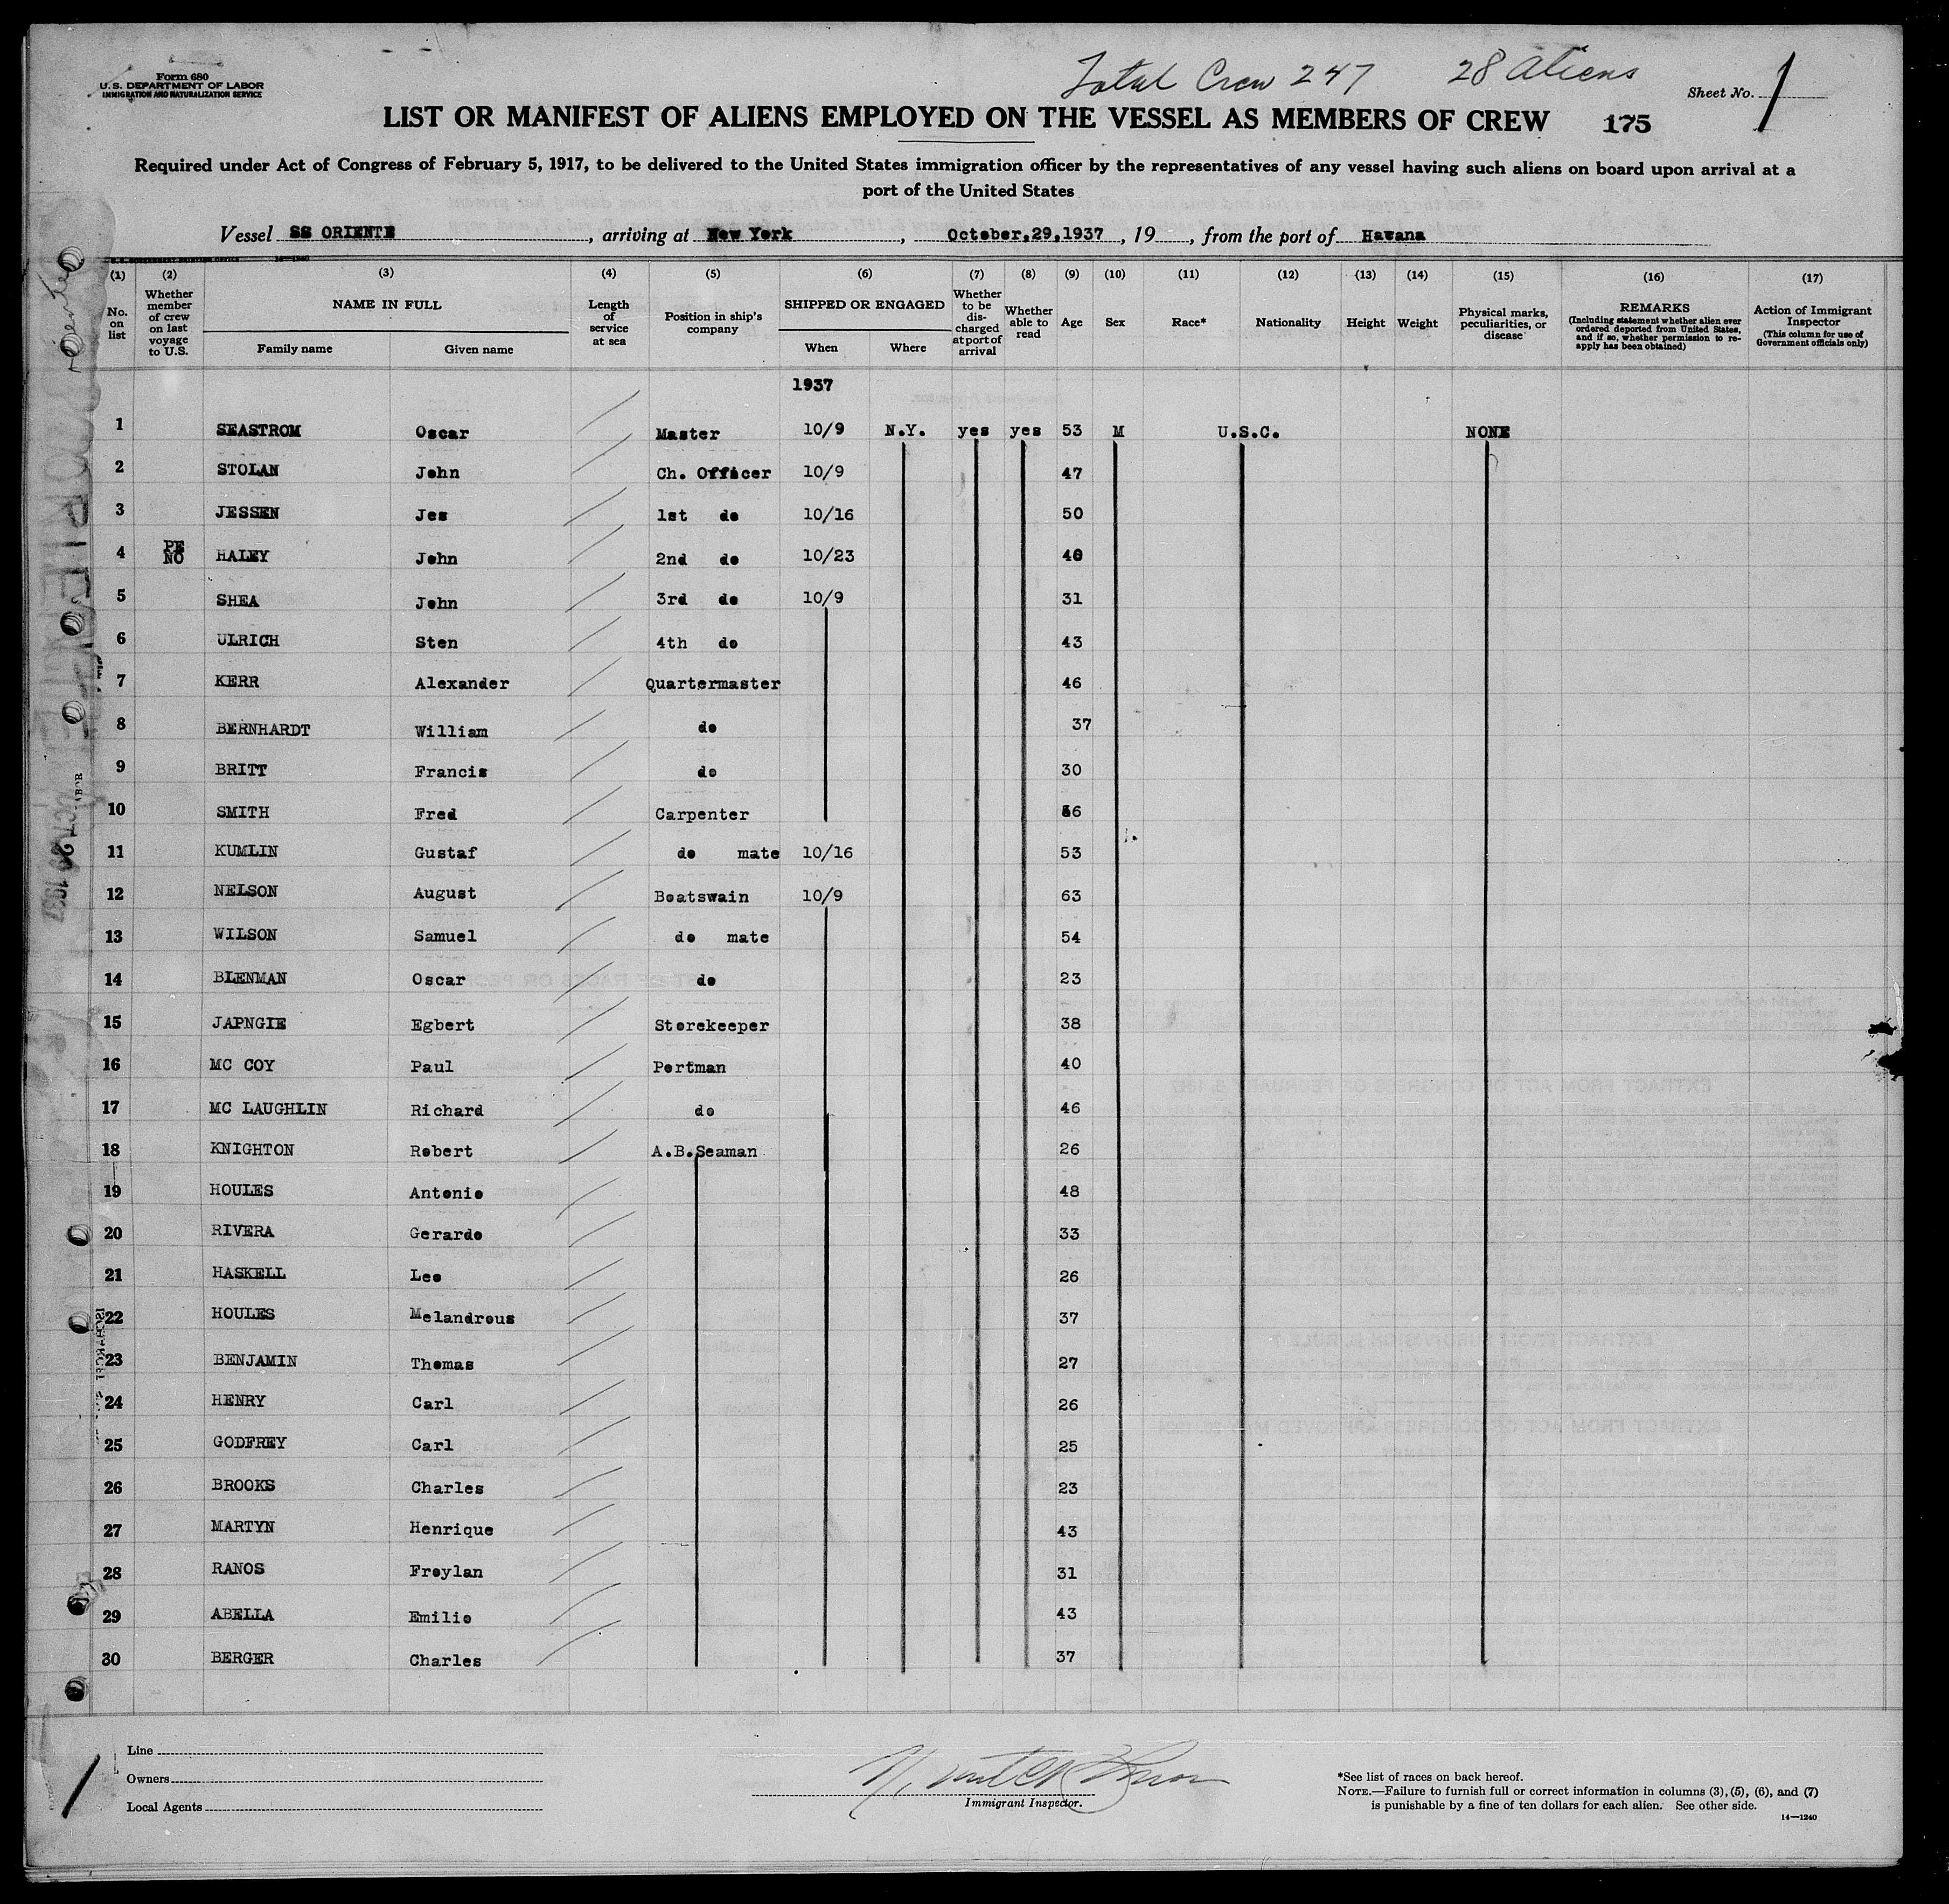 Total Crew 247 28 Aliens
Form 680
U.S. DEPARTMENT OF LABOR
IMMIGRATION AND NATURALIZATION SERVICE
Sheet No. 1
LIST OR MANIFEST OF ALIENS EMPLOYED ON THE VESSEL AS MEMBERS OF CREW 175
Required under Act of Congress of February 5, 1917, to be delivered to the United States immigration officer by the representatives of any vessel having such aliens on board upon arrival at a
port of the United States
Vessel SS ORIENTE, arriving at New York, October,29,1937, 19, from the port of Havana
(1) (2) (3) (4) (5) (6) (7) (8) (9) (10) (11) (12) (13) (14) (15) (16) (17)
No. on list
Whether member of crew on last voyage to U.S.
NAME IN FULL
Family name Given name
Length of service at sea
Position in ship's company
SHIPPED OR ENGAGED
When Where
Whether to be discharged at port of arrival
Whether able to read
Age
Sex
Race*
Nationality
Height
Weight
Physical marks, peculiarities, or disease
REMARKS
(Including statement whether alien ever ordered deported from United States, and if so, whether permission to reapply has been obtained)
Action of Immigrant Inspector
(This column for use of Government officials only)
1937
1 SEASTROM Oscar Master 10/9 N.Y. yes yes 53 M U.S.C. NONE
2 STOLAN John Ch. Officer 10/9 47
3 JESSEN Jes 1st do 10/16 50
4 PF NO HALEY John 2nd do 10/23 40
5 SHEA John 3rd do 10/9 31
6 ULRICH Sten 4th do 43
7 KERR Alexander Quartermaster 46
8 BERNHARDT William do 37
9 BRITT Francis do 30
10 SMITH Fred Carpenter
11 KUMLIN Gustaf do mate 10/16 53
12 NELSON August Boatswain 10/9 63
13 WILSON Samuel do mate 54
14 BLENMAN Oscar do 23
15 JAPNGIE Egbert Storekeeper 38
16 MC COY Paul Portman 40
17 MC LAUGHLIN Richard do 46
18 KNIGHTON Robert A.B.Seaman 26
19 HOULES Antonio 48
20 RIVERA Gerardo 33
21 HASKELL Leo 26
22 HOULES Melandrous 37
23 BENJAMIN Thomas 27
24 HENRY Carl 26
25 GODFREY Carl 25
26 BROOKS Charles 23
27 MARTYN Henrique 43
28 RANOS Froylan 31
29 ABELLA Emilio 43
30 BERGER Charles 37
Line
Owners
Local Agents
Immigrant Inspector.
*See list of races on back hereof.
NOTE.—Failure to furnish full or correct information in columns (3), (5), (6), and (7)
is punishable by a fine of ten dollars for each alien. See other side.
14—1240